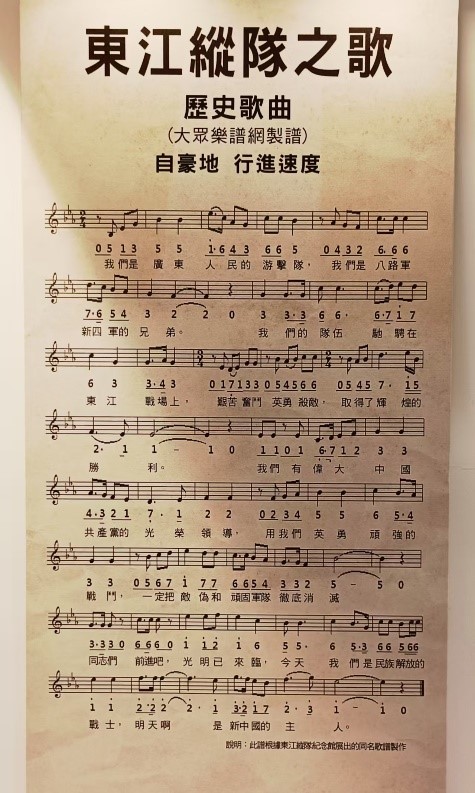 東江縱隊之歌
歷史歌曲
(大眾樂譜網製譜)
自豪地 行進速度
0 5 1 3 5 5 1·6 4 3 6 6 5 0 4 3 2 6·6 6
我們是 廣 東 人 民的 游擊 隊， 我們是 八路軍
7·6 5 4 3 2 2 0 3 3·3 6 6· 6·7 1 7
新四 軍的 兄 弟。 我 們的 隊伍 馳 騁在
6 3 3·4 3 0 1 7 1 3 3 0 5 4 5 6 6 0 5 4 5 7· 1 5
東 江 戰場上， 艱苦 奮鬥 英勇 殺敵， 取得了 輝 煌的
2· 1 1 – 1 0 1 1 0 1 6·7 1 2 3 3
勝 利。 我們 有 偉 大 中 國
4·3 2 1 7· 1 2 2 0 2 3 4 5 5 6 5·4
共產黨的 光 榮 領 導， 用我們 英 勇 頑 強的
3 3 0 5 6 7 1 7 7 6 6 5 4 3 3 2 5 – 5 0
戰 鬥， 一定把 敵 偽和 頑固軍隊 徹底消 滅
3·3 3 0 6 0 1 1 2 1 6 5 5· 6 5·3 6 6 5 6 6
同志們 前進吧， 光 明已 來 臨， 今天 我 們 是 民族解放的
1 1 2·2 2 2· 1 3·2 1 7 2· 3 1 – 1 0
戰 士， 明天啊 是 新中國的 主 人。
說明：此譜根據東江縱隊紀念館展出的同名歌譜製作